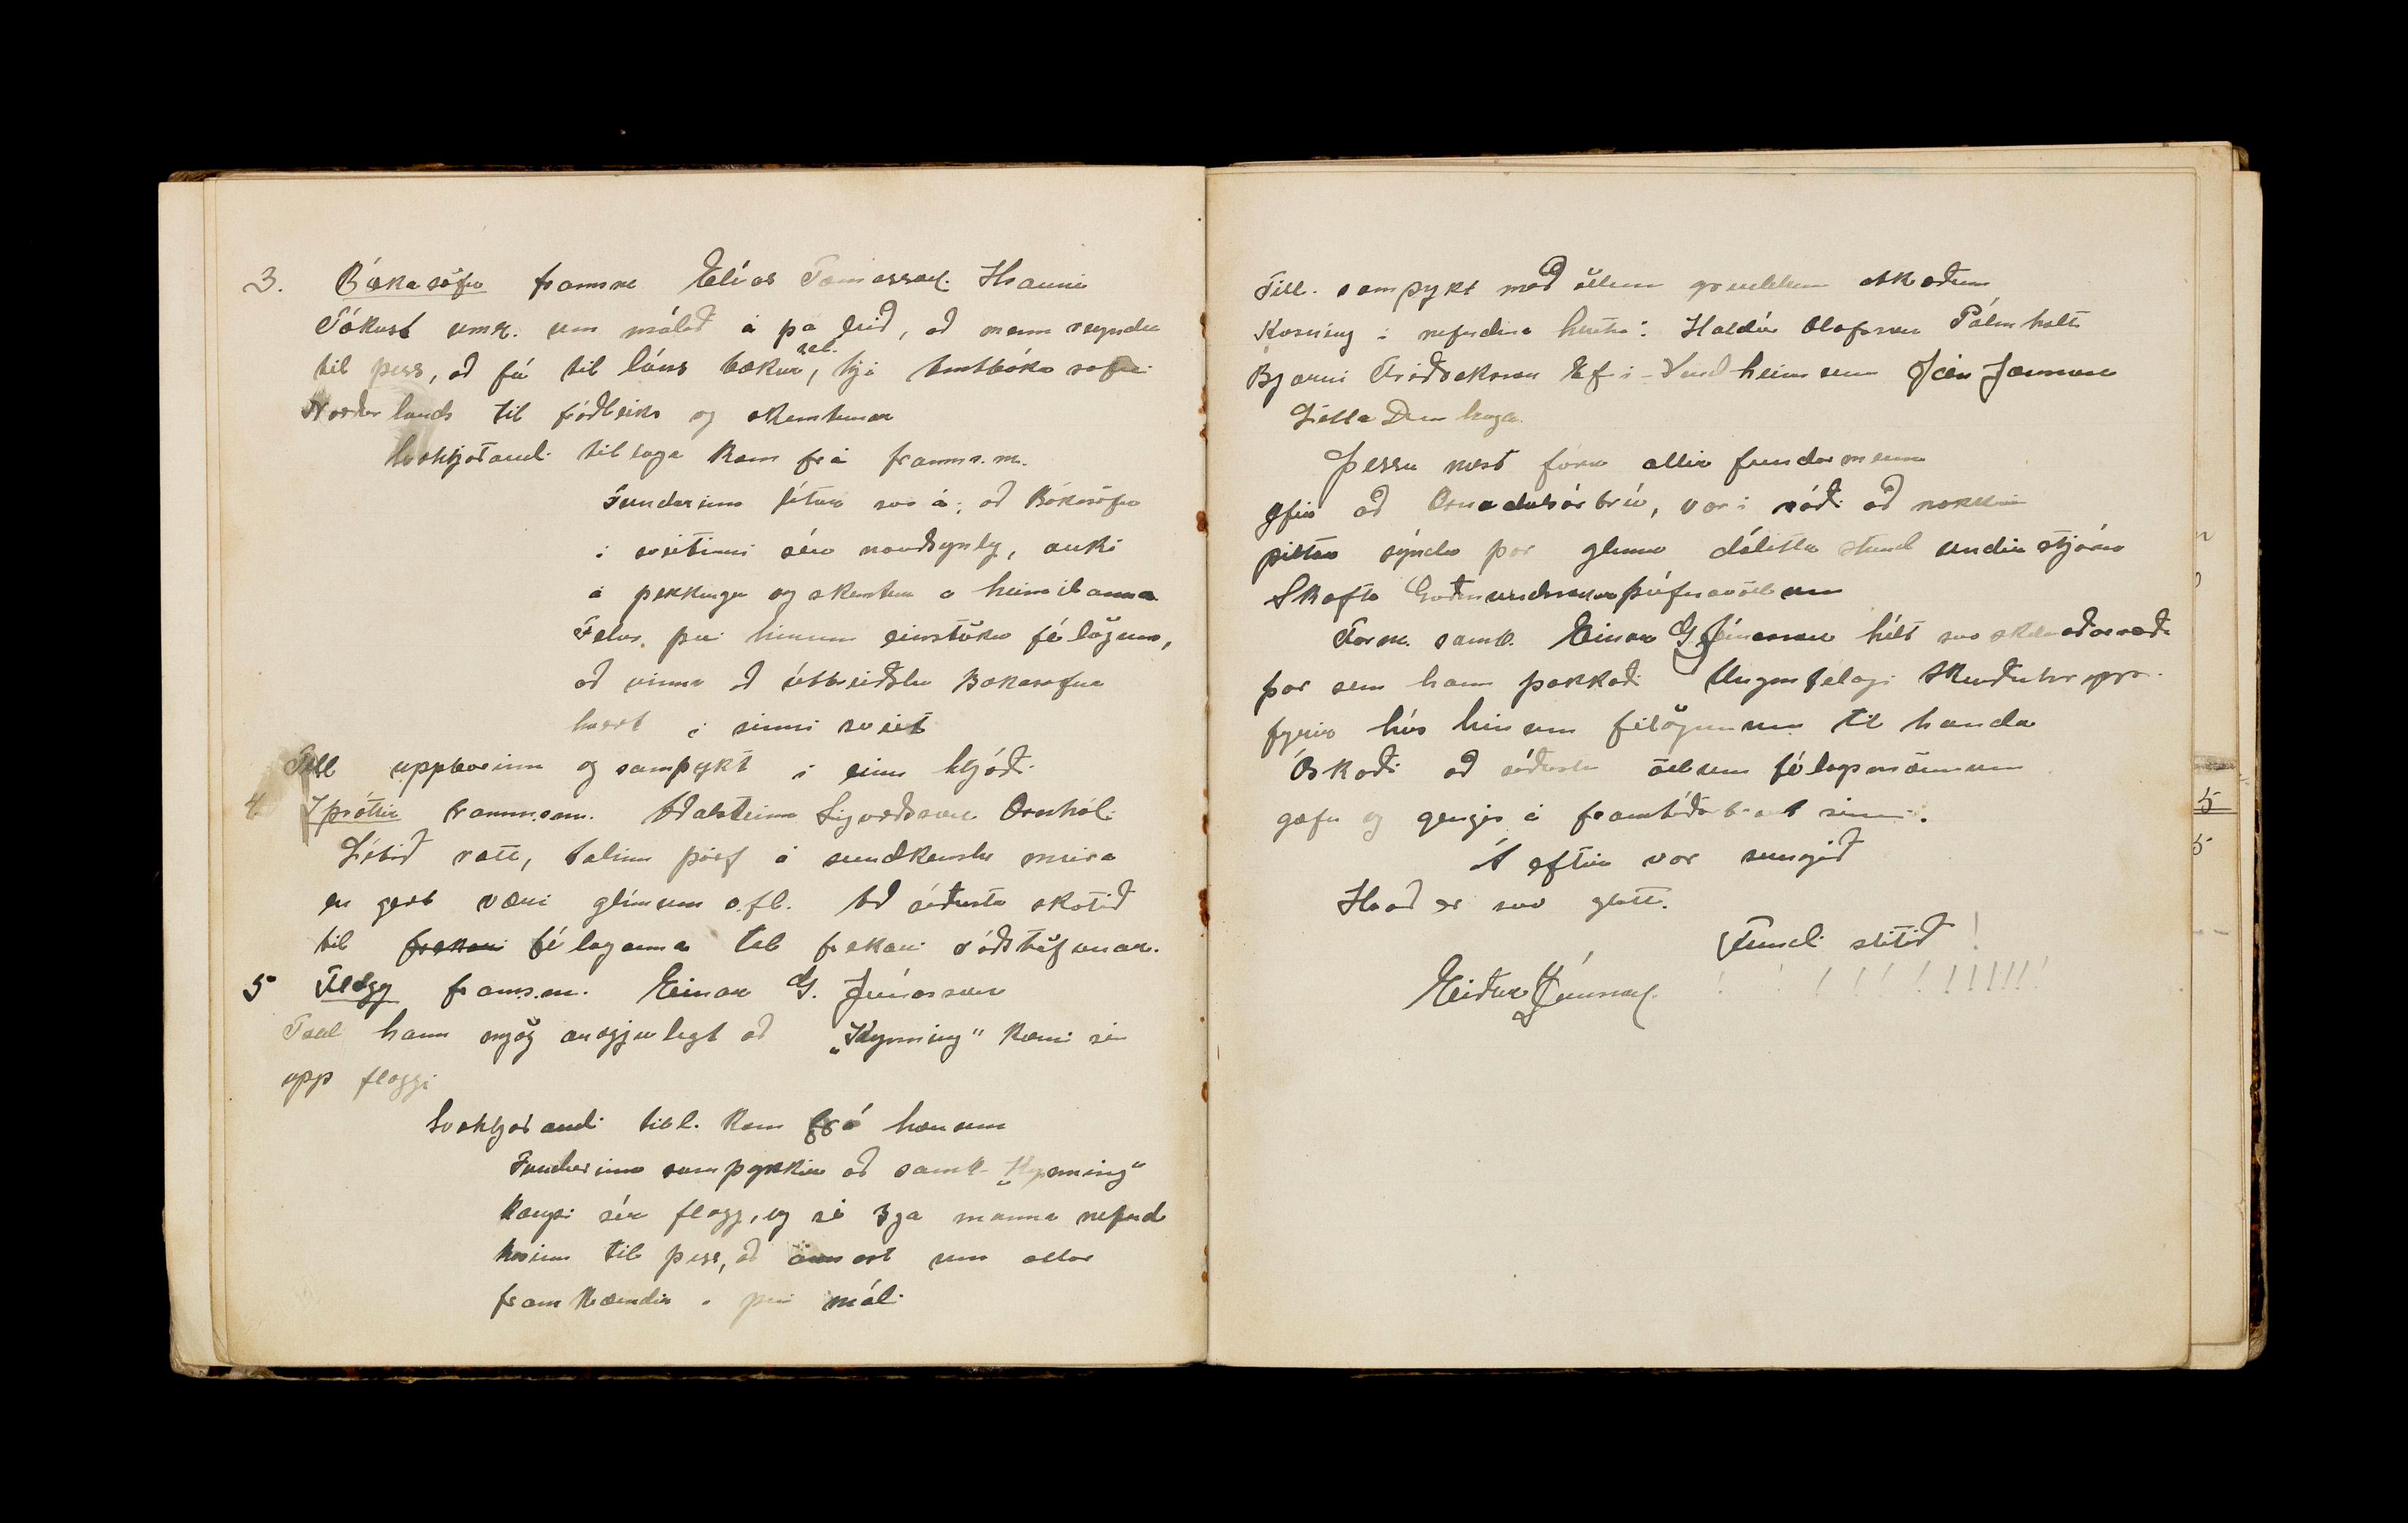 3. Bókasöfn framsm Elías Tómasson. Hrauni
Tókust umr. um málið á þá leið, að menn reyndu
til þess, að fá til láns bækur, hjá Amtbóka safni
Norðurlands til fróðleiks og skemtunar
Svohljóðandi tillaga kom frá framsm.
Fundurinn lítur svo á, að Bókasöfn
í sveitinni séu nauðsynleg, auki
á þekkingu og skemtun á heimilanna
Felur því hinum einstöku félögum,
að vinna að útbreiðslu Bókasafna
hvert í sinni sveit
Till uppborinn og samþykt í einu hljóði
4. Íþróttir frammsm. Aðalsteinn Sigurðsson Öxnhóli
Lítið rætt, talinn þörf á sundkenslu meira
en gert væri glímum o.fl. Að síðustu skotið
til frekari félaganna til frekari ráðstöfunar.
5 Flagg frams.m. Einar G. Jónasson
Taldi hann mjög ansgjulegt að „Kynning" kæmi sér
upp flaggi
Svohljóðandi till. kom frá honum
Fundurinn samþykkir að samb. „Kynning"
kaupi sér flagg, og sé 3ja manna nefnd
kosinn til þess, að annast um allar
framkvæmdir í því máli
Till. samþykt með öllum greiddum atkvæðum
Kosning í nefndina hlutu: Halldór Ólafsson Pálmholti
Bjarni Friðriksson Efri-Vindheimum Jón Jónsson
Litla Dunhaga.
Þessu næst fóru allir fundarmenn
yfir að Arnadalsárbrú, var í ráði að nokkrir
piltar sýndu þar glímu dálitla stund undir stjórn
Skafta Guðmundssonar Þúfnavöllum
Form. samb. Einar G. Jónasson hélt svo skilnaðarræðu
þar sem hann þakkaði Ungmfélagi Skriðuhrepps.
fyrir hús hinum félögunum til handa
Óskaði að síðustu öllum félagsmönnum
gæfu og gengis á framtíðarbraut sinni.
Á eftir var sungið
Hvað er svo glatt.
Fundi slitið !
Eiður Jónsson